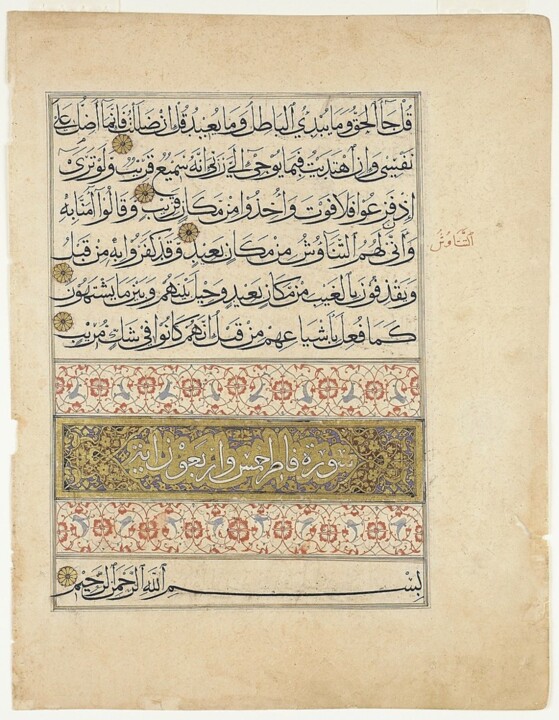 قُلْ جَآءَ الْحَقُّ وَمَا يُبْدِئُ الْبَاطِلُ وَمَا يُعِيدُ قُلْ اِنْ ضَلَلْتُ فَاِنَّمَآ اَضِلُّ عَلٰى
نَفْسِى وَاِنِ اهْتَدَيْتُ فَبِمَا يُوحٰى اِلَىَّ رَبِّى اِنَّهُ سَمِيعٌ قَرِيبٌ وَلَوْ تَرٰى
اِذْ فَزِعُوا فَلَا فَوْتَ وَاُخِذُوا مِنْ مَكَانٍ قَرِيبٍ وَقَالُوا اٰمَنَّا بِهِ
وَاَنّٰى لَهُمُ التَّنَاوُشُ مِنْ مَكَانٍ بَعِيدٍ وَقَدْ كَفَرُوا بِهِ مِنْ قَبْلُ
التَّنَاوُشُ
وَيَقْذِفُونَ بِالْغَيْبِ مِنْ مَكَانٍ بَعِيدٍ وَحِيلَ بَيْنَهُمْ وَبَيْنَ مَا يَشْتَهُونَ
كَمَا فُعِلَ بِاَشْيَاعِهِمْ مِنْ قَبْلُ اِنَّهُمْ كَانُوا فِى شَكٍّ مُرِيبٍ
سورة فاطر خمس واربعون اية
بِسْمِ اللّٰهِ الرَّحْمٰنِ الرَّحِيمِ